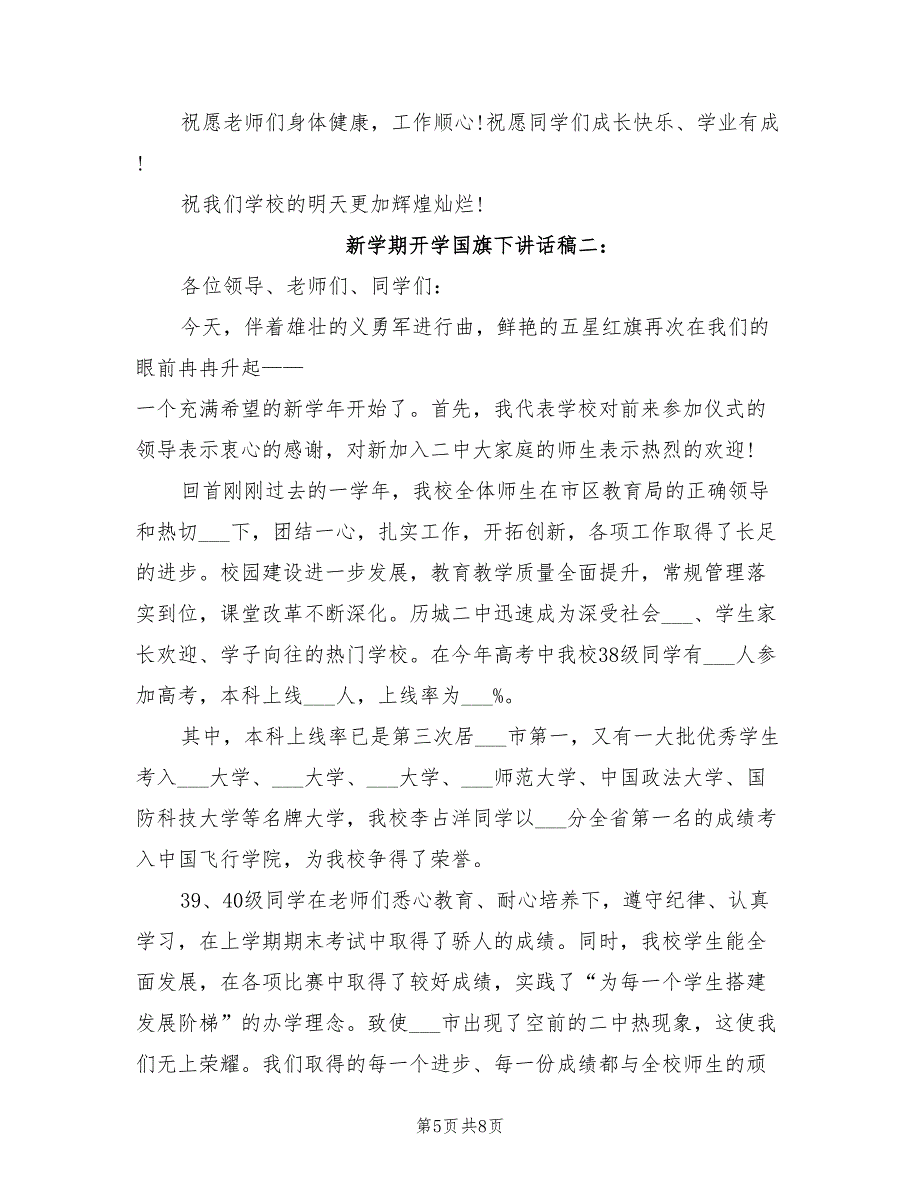 祝愿老师们身体健康，工作顺心!祝愿同学们成长快乐、学业有成
!
祝我们学校的明天更加辉煌灿烂!
新学期开学国旗下讲话稿二：
各位领导、老师们、同学们：
今天，伴着雄壮的义勇军进行曲，鲜艳的五星红旗再次在我们的
眼前冉冉升起——
一个充满希望的新学年开始了。首先，我代表学校对前来参加仪式的
领导表示衷心的感谢，对新加入二中大家庭的师生表示热烈的欢迎!
回首刚刚过去的一学年，我校全体师生在市区教育局的正确领导
和热切___下，团结一心，扎实工作，开拓创新，各项工作取得了长足
的进步。校园建设进一步发展，教育教学质量全面提升，常规管理落
实到位，课堂改革不断深化。历城二中迅速成为深受社会___、学生家
长欢迎、学子向往的热门学校。在今年高考中我校38级同学有___人参
加高考，本科上线___人，上线率为___%。
其中，本科上线率已是第三次居___市第一，又有一大批优秀学生
考入___大学、___大学、___大学、___师范大学、中国政法大学、国
防科技大学等名牌大学，我校李占洋同学以___分全省第一名的成绩考
入中国飞行学院，为我校争得了荣誉。
39、40级同学在老师们悉心教育、耐心培养下，遵守纪律、认真
学习，在上学期期末考试中取得了骄人的成绩。同时，我校学生能全
面发展，在各项比赛中取得了较好成绩，实践了“为每一个学生搭建
发展阶梯”的办学理念。致使___市出现了空前的二中热现象，这使我
们无上荣耀。我们取得的每一个进步、每一份成绩都与全校师生的顽
第5页 共8页